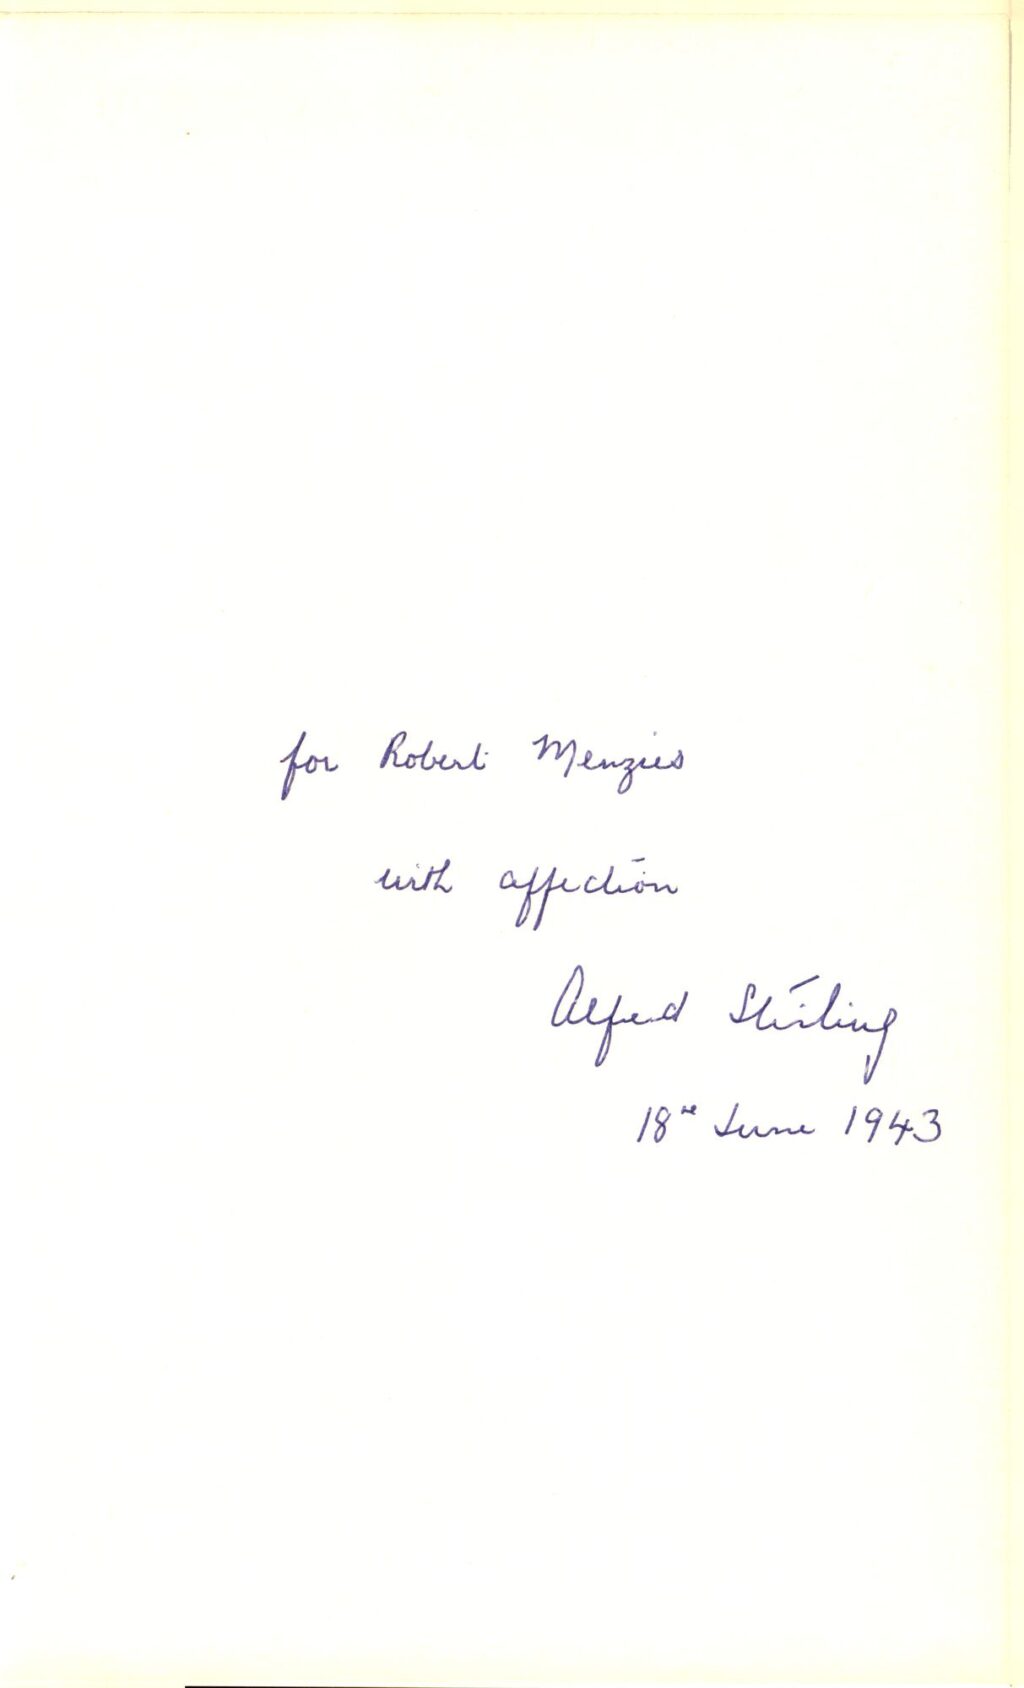 for Robert Menzies
with affection
Alfred Stirling
18th June 1943